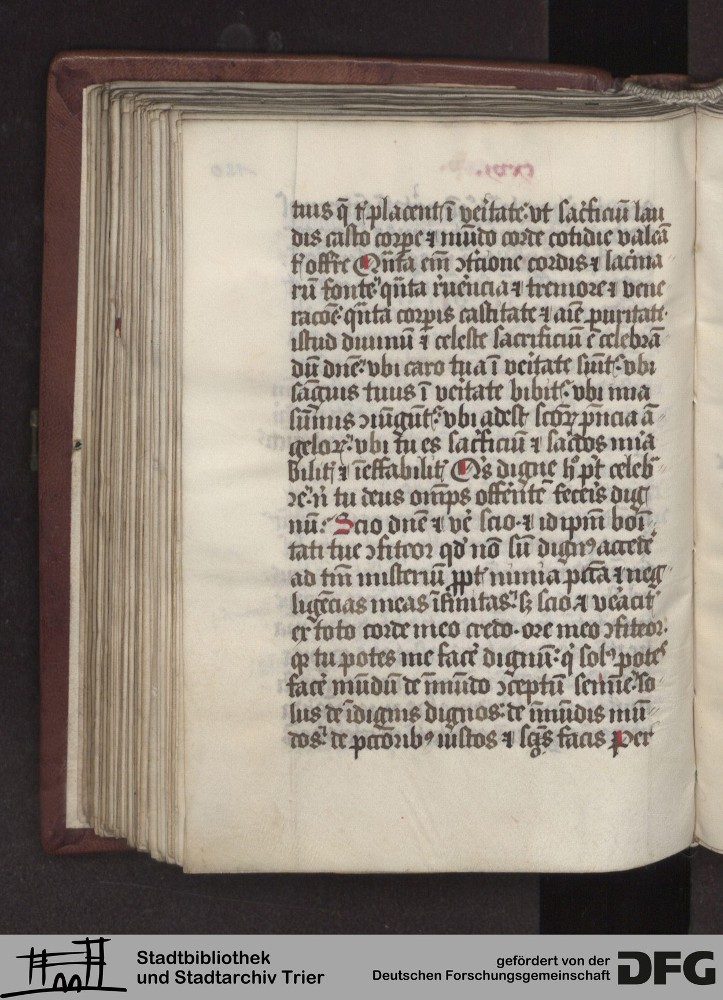 tuus q̄ t᷑ placent ī veritate· vt sacrificiū lau
dis casto corpe ⁊ mūdo corde cotidie valeā
t᷑ offre Q̄nta em̄ ꝯtricione cordis ⁊ lacrima
rū fonte· q̄nta reuēncia ⁊ tremore ⁊ vene
racōe· q̄nta corpis castitate ⁊ aīe puritate·
istud diuinū ⁊ celeste sacrificiū ē celebrā
dū dn̄e· vbi caro tua ī veritate sumit᷑· vbi
sāguis tuus ī veritate bibit᷑· vbi ima
sūmis ꝯiūgūt᷑· vbi adest scōꝝ pn̄cia ā
geloꝝ· vbi tu es sacrificiū ⁊ sacdos mira
bilit᷑ ⁊ īeffabilit᷑ Qis digne h᷒ pt̄ celeb
re· n̄ tu deus om̄ps offerente feceris dig
nū· Scio dn̄e ⁊ ve᷑ scio· ⁊ id ipm̄ boni
tati tue ꝯfiteor qd̄ nō sū dign᷒ accede᷑
ad tm̄ misteriū ꝓpt᷑ nimia pctā ⁊ neg
ligēcias meas īfinitas· sꝫ scio ⁊ veracit᷑
ex toto corde meo credo· ore meo ꝯfiteor·
qꝛ tu potes me face᷑ dignū· q̇ sol᷒ potes
face᷑ mūdū de īmūdo ꝯceptū semīe· so
lus de īdignis dignos· de īmūdis mū
dos· de pctorib᷒ iustos ⁊ scōs facis Per
Stadtbibliothek
und Stadtarchiv Trier
gefördert von der
Deutschen Forschungsgemeinschaft
DFG